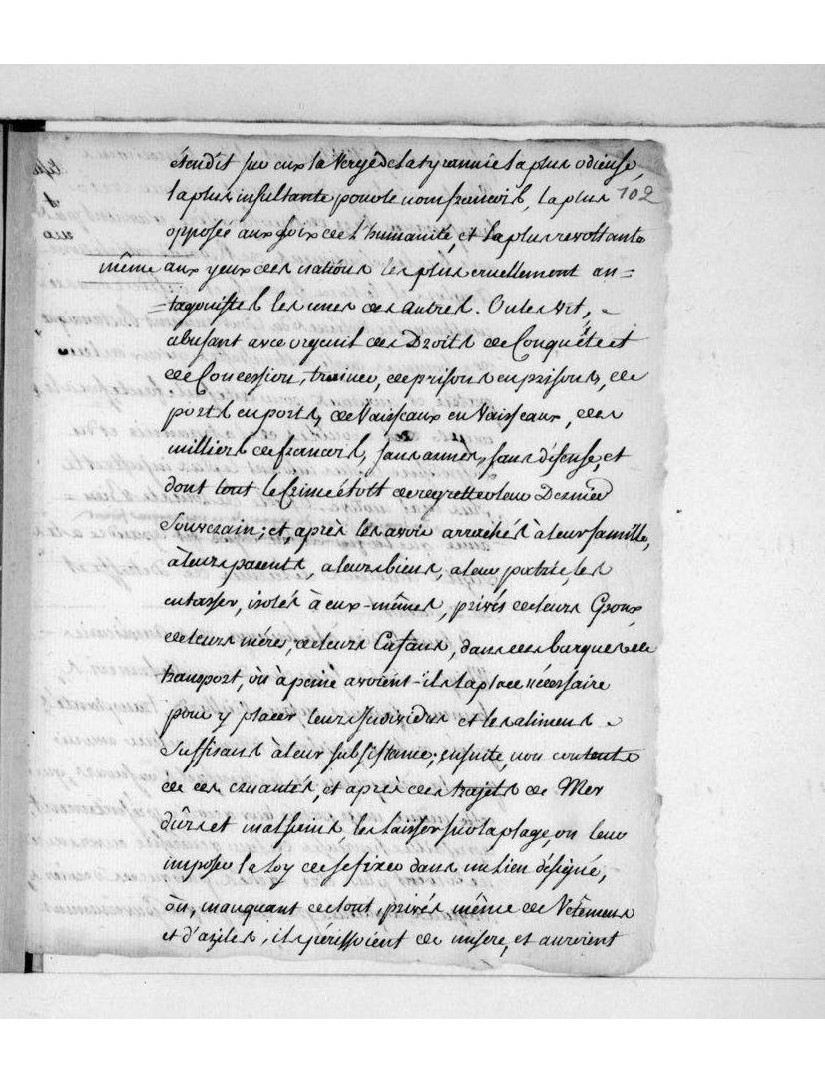 étendit sur eux la Verge de la tyrannie la plus odieuse,
la plus insultante pour le nom francois, la plus 102
opposée aux Loix de l'humanité, et la plus revoltante
même aux yeux des nations les plus cruellement an=
=tagonistes les unes des autres. On les vit,
abusant avec orgueil des Droits de Conquête et
de Concession, trainer, de prisons en prisons, de
ports en ports, de Vaisseaux en Vaisseaux, des
milliers de francois, sans armes, sans défense, et
dont tout le Crime étoit de regretter leur Dernier
Souverain; et, après les avoir arrachés à leur famille,
à leurs parents, a leurs biens, a leur patrie, les
entasser, isolés à eux-mêmes, privés de leurs Epoux,
de leurs mères, de leurs Enfans, dans des barques de
transport, où à peine avoient-ils la place nécessaire
pour y placer leurs Individus et les alimens
Suffisans à leur subsistance; ensuite, non contents
de ces cruautés, et après des trajets de Mer
durs et malsains, les laisser sur la plage, ou leur
imposer la Loy de se fixer dans un lieu désigné,
où, manquant de tout, privés même de Vetemens
et d'aziles, ils périssoient de misere, et auroient